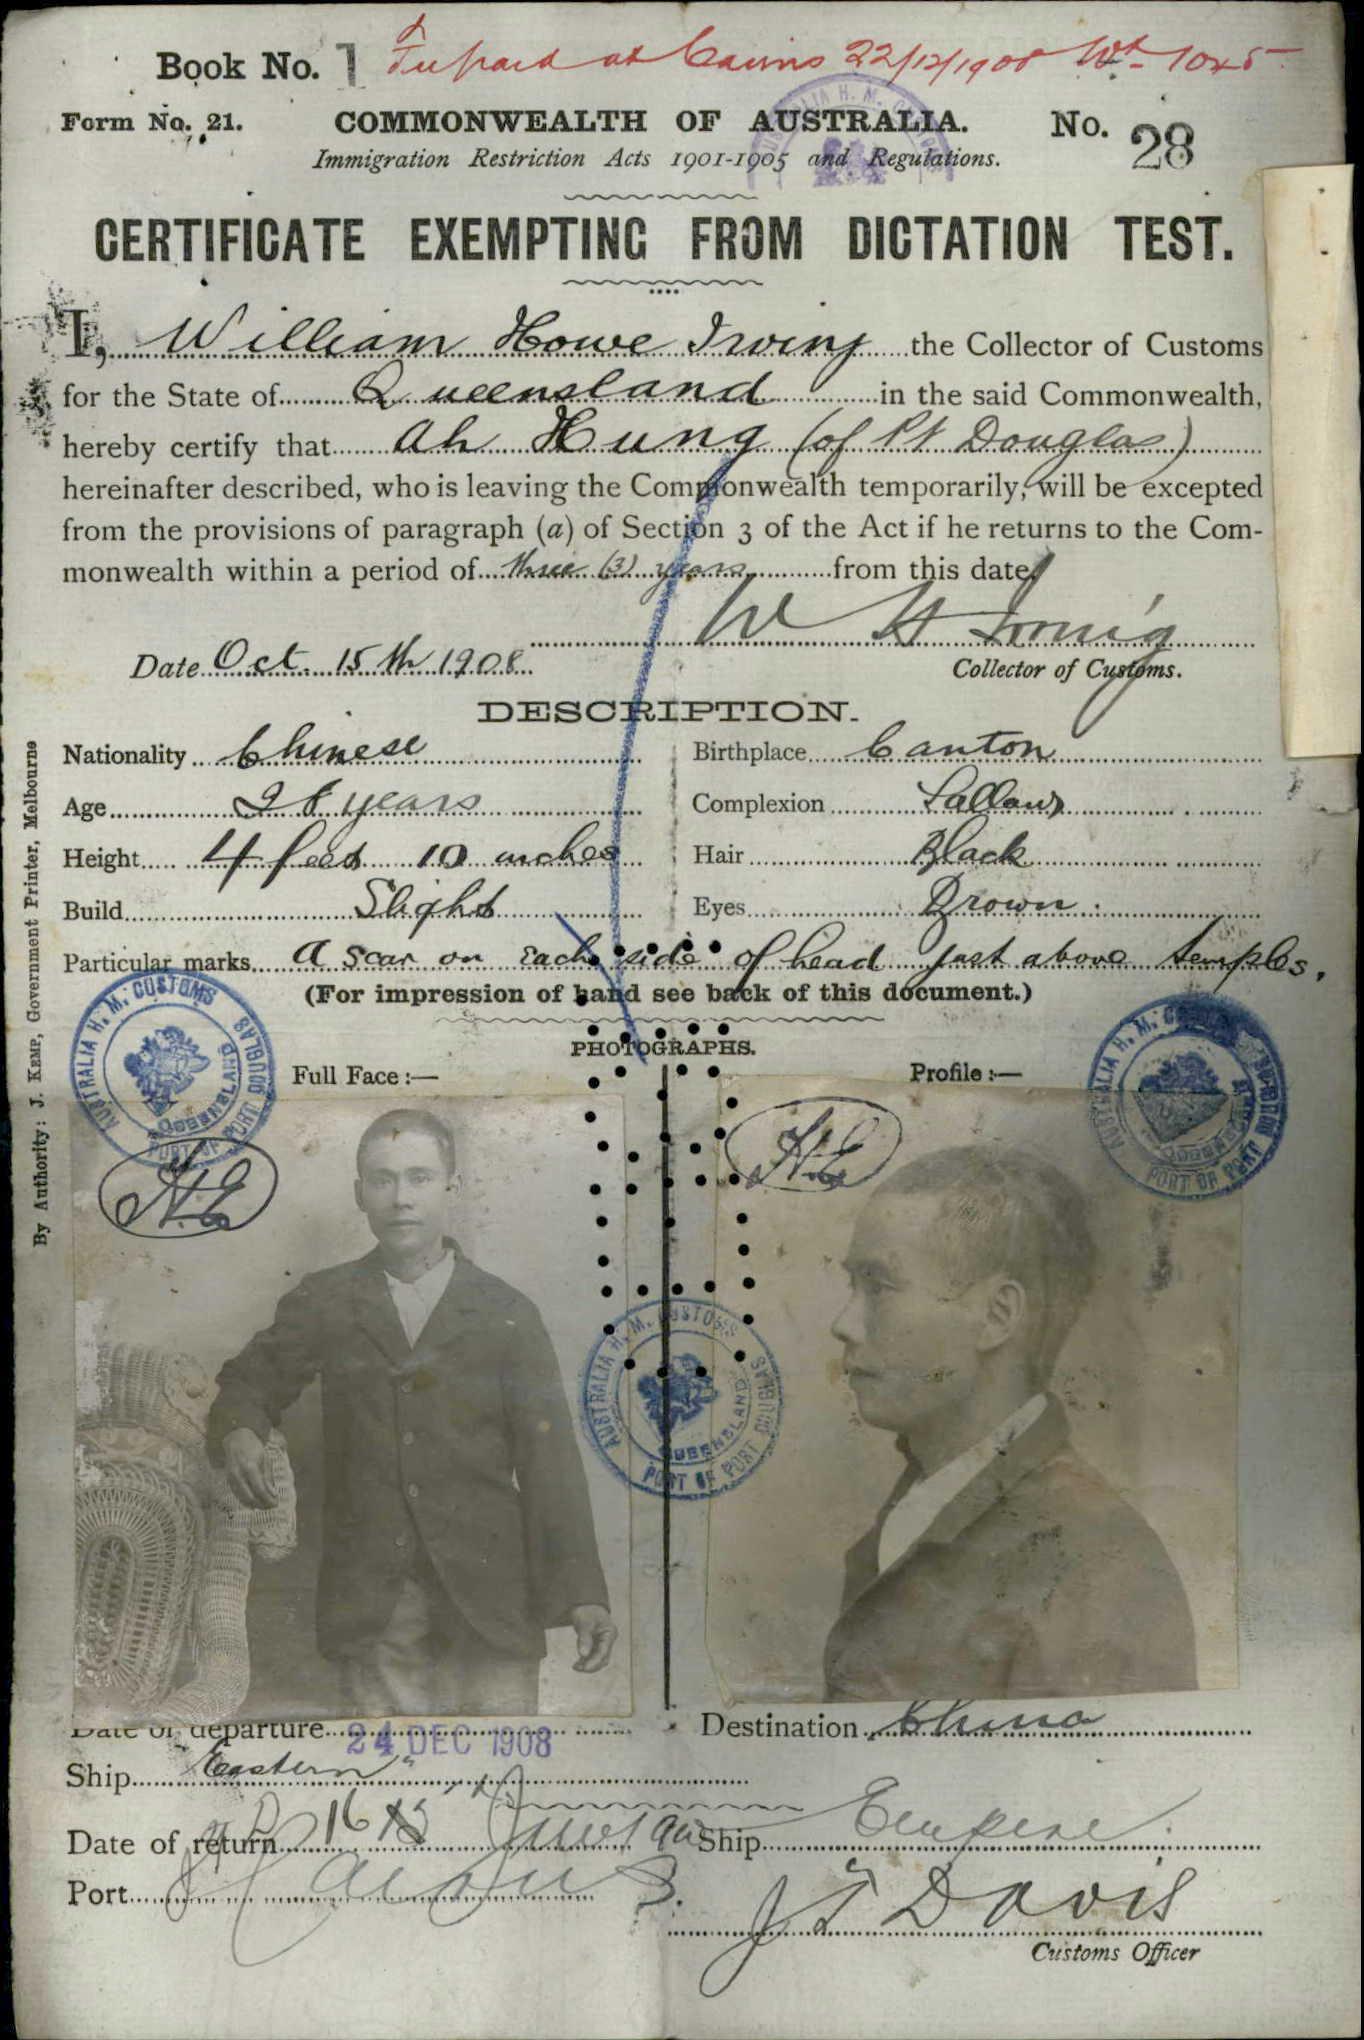 Book No. 1 at Cairns 22/12/1908
Form No. 21. COMMONWEALTH OF AUSTRALIA. No. 28
Immigration Restriction Acts 1901-1905 and Regulations.
CERTIFICATE EXEMPTING FROM DICTATION TEST.
I, William Howe Irving the Collector of Customs
for the State of Queensland in the said Commonwealth,
hereby certify that Ah Hung (of Pt Douglas)
hereinafter described, who is leaving the Commonwealth temporarily, will be excepted
from the provisions of paragraph (a) of Section 3 of the Act if he returns to the Com-
monwealth within a period of three (3) years from this date
W H Irving
Date Oct. 15th 1908 Collector of Customs.
DESCRIPTION.
Nationality Chinese Birthplace Canton
Age 28 years Complexion Sallow
Height 4 feet 10 inches Hair Black
Build Slight Eyes Brown
Particular marks a scar on each side of head just above temples.
(For impression of hand see back of this document.)
PHOTOGRAPHS.
Full Face :— Profile :—
AUSTRALIA H. M. CUSTOMS PORT OF PORT DOUGLAS QUEENSLAND
AUSTRALIA H. M. CUSTOMS PORT OF PORT DOUGLAS QUEENSLAND
H.E H.E
AUSTRALIA H. M. CUSTOMS PORT OF PORT DOUGLAS QUEENSLAND
Date of departure 24 DEC 1908 Destination China
Ship "Eastern"
Date of return 16 Ship Empire
Port Cairns
J T Davis
Customs Officer
By Authority: J. KEMP, Government Printer, Melbourne